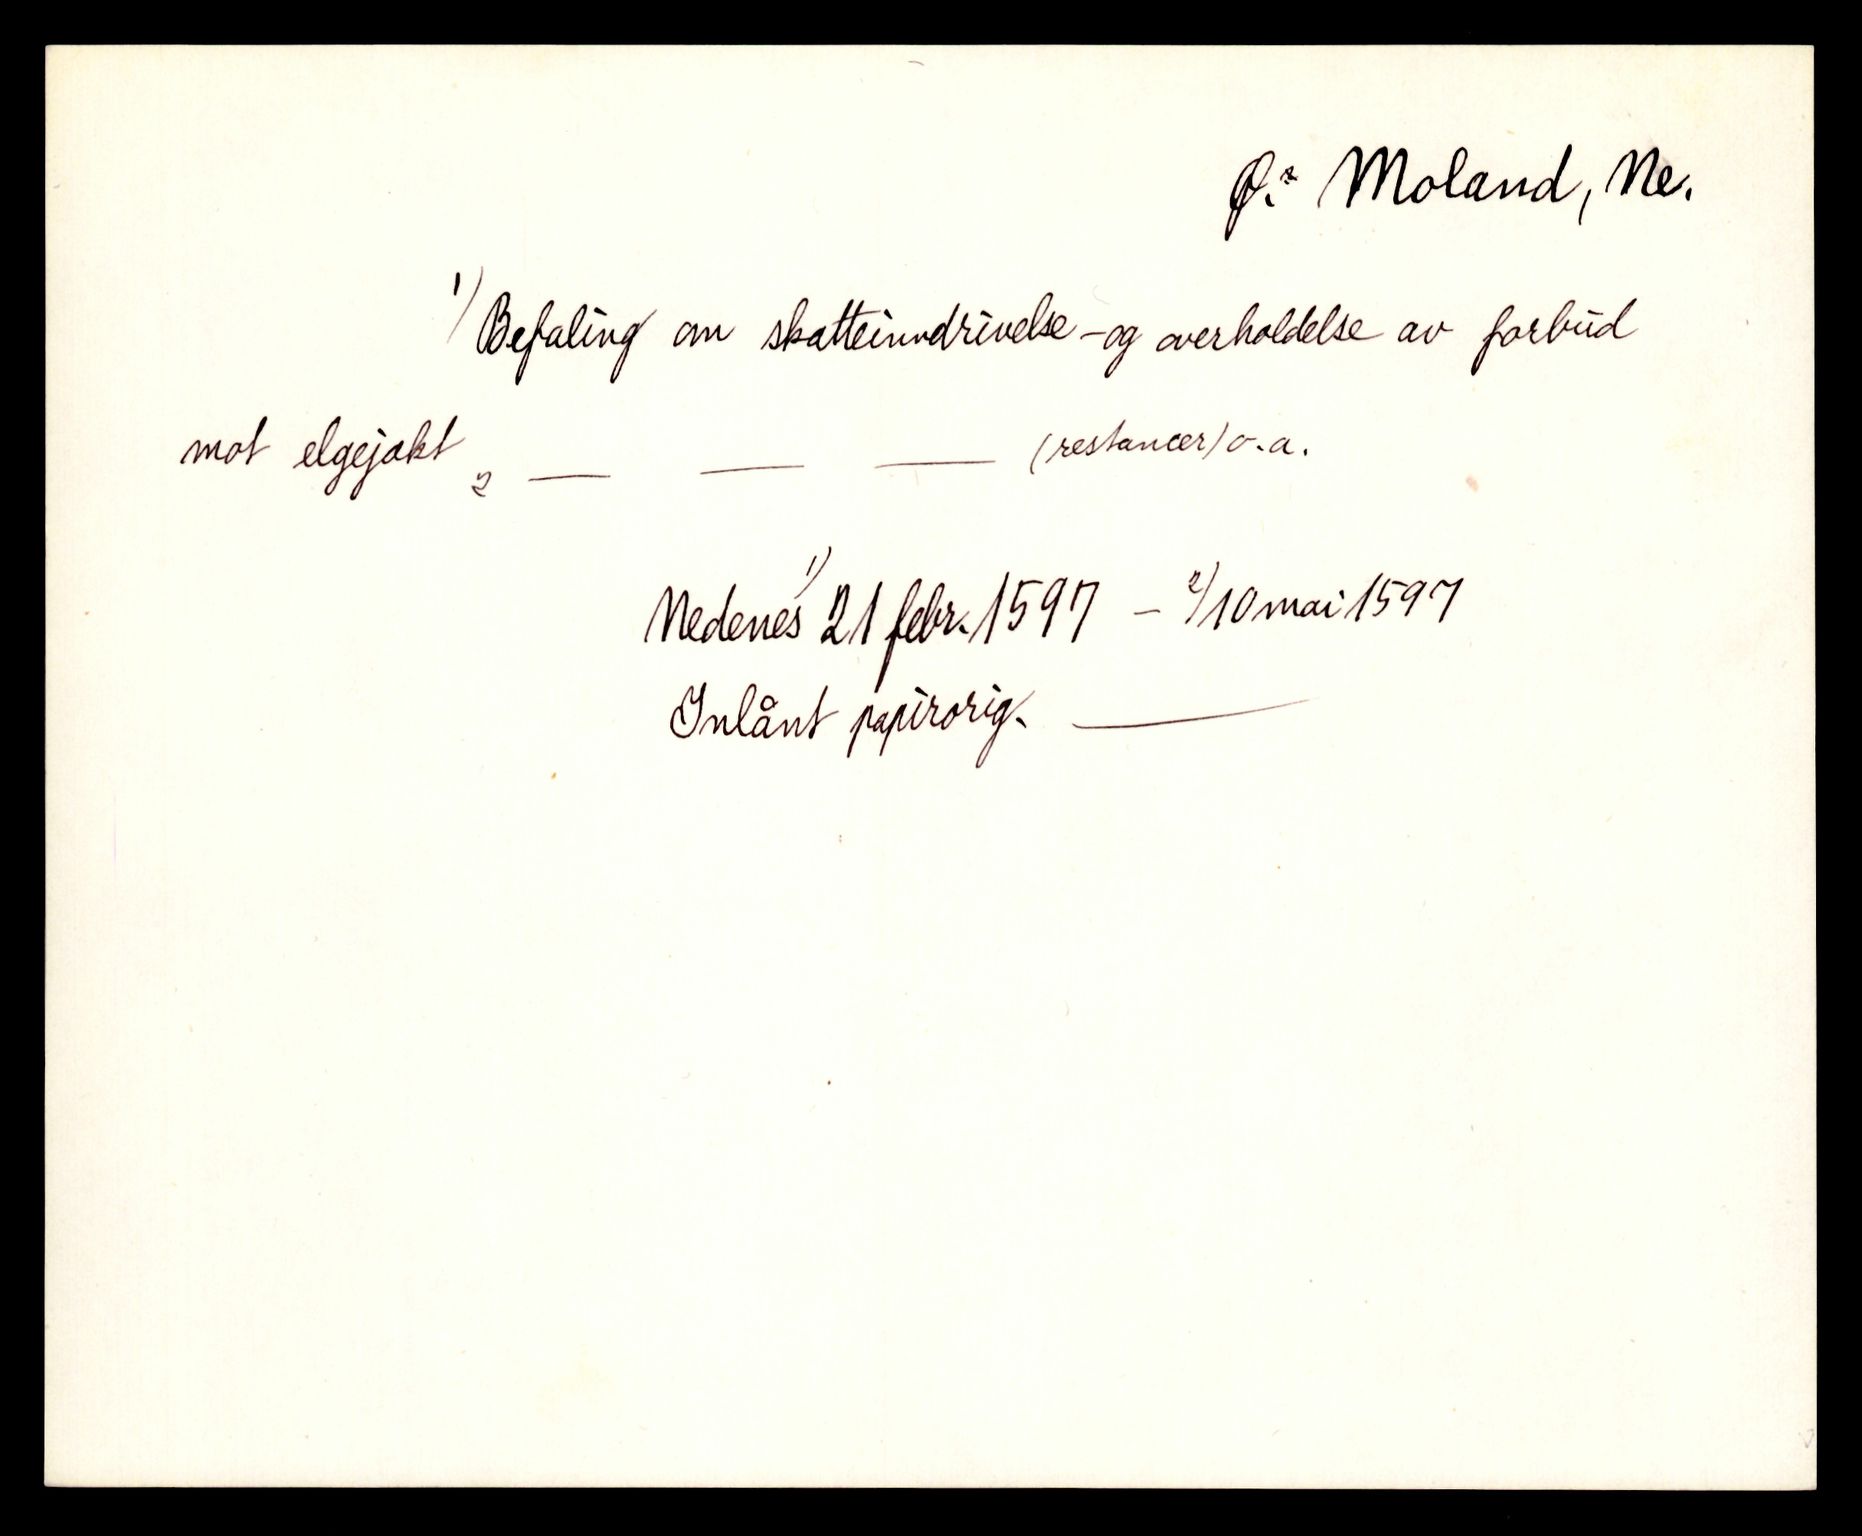 Ø.² Moland, Ne.
1) Befaling om skatteinndrivelse - og overholdelse av forbud
mot elgejakt 2 — — — (restancer) o.a.
Nedenes 1) 21 febr. 1597 — 2) 10 mai 1597
Inlånt papirorig. —